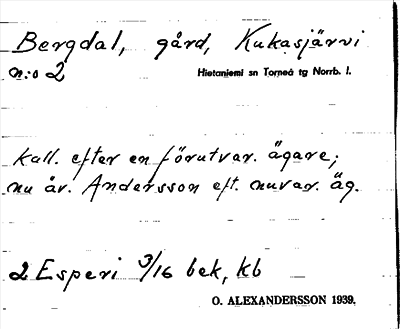 Bergdal, gård, Kukasjärvi
n:o 2 Hietaniemi sn Torneå tg Norrb. l.
kall. efter en förutvar. ägare;
nu är Andersson eft. nuvar. äg.
2 Esperi 3/16 bek, kb
O. ALEXANDERSSON 1939.